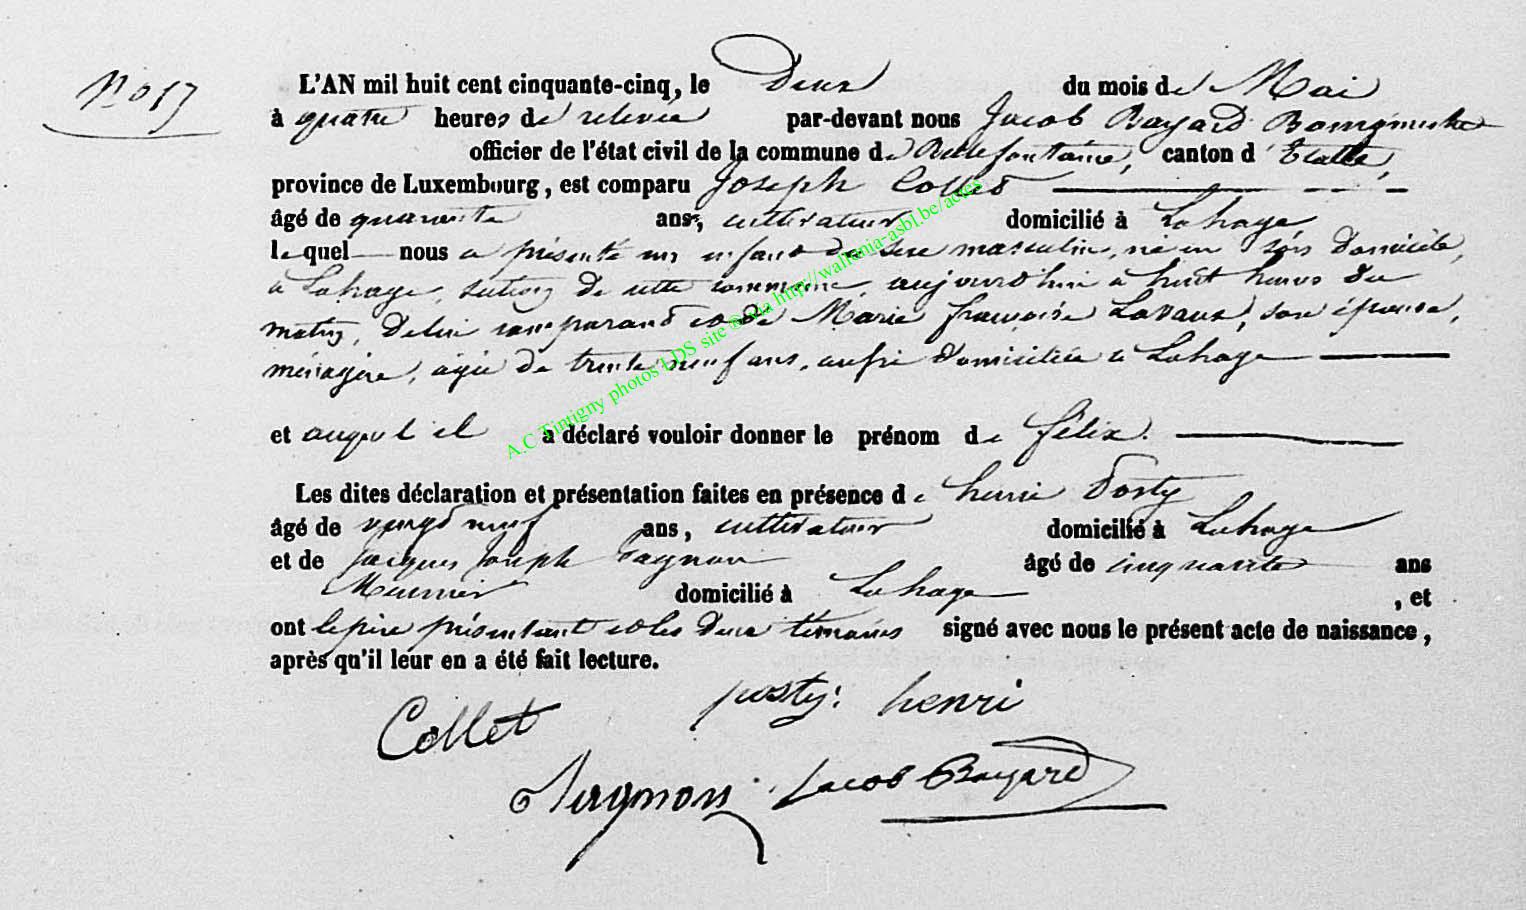 N° 17
L'AN mil huit cent cinquante-cinq, le Deux du mois de Mai
à quatre heures de relevée par-devant nous Jacob Bayard Bourgmestre
officier de l'état civil de la commune de Bellefontaine, canton d'Etalle,
province de Luxembourg, est comparu Joseph Collet
âgé de quarante ans, cultivateur domicilié à Lahage
lequel nous a présenté un enfant de sexe masculin, né en son domicile,
à Lahage, section de cette commune, aujourd'hui à huit heures du
matin, de lui comparant et de Marie françoise Lavaux, son épouse,
ménagère, agée de trente neuf ans, aussi domiciliée à Lahage
et auquel il a déclaré vouloir donner le prénom de félix.
Les dites déclaration et présentation faites en présence de henri Posty
âgé de vingt neuf ans, cultivateur domicilié à Lahage
et de Jacques Joseph Pagnon âgé de cinquante ans
Meunier domicilié à Lahage, et
ont le père présentant et les deux témoins signé avec nous le présent acte de naissance,
après qu'il leur en a été fait lecture.
Collet posty henri
Jacob Bayard
A.C Tintigny photos LDS site © via http://wallonia-asbl.be/actes